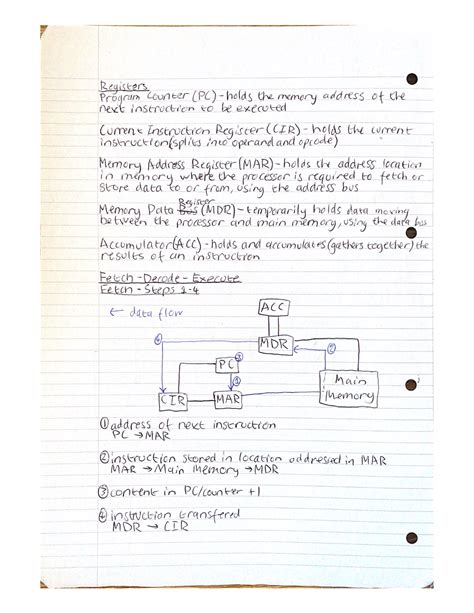 Registers
Program Counter (PC) - holds the memory address of the
next instruction to be executed
Current Instruction Register (CIR) - holds the current
instruction (splits into operand and opcode)
Memory Address Register (MAR) - holds the address location
in memory where the processor is required to fetch or
store data to or from, using the address bus
Register
Memory Data Bus (MDR) - temporarily holds data moving
between the processor and main memory, using the data bus
Accumulator (ACC) - holds and accumulates (gathers together) the
results of an instruction
Fetch - Decode - Execute
Fetch - Steps 1-4
← data flow
ACC
MDR
④
②
PC ③
①
CIR
MAR
Main
Memory
① address of next instruction
PC → MAR
② instruction stored in location addressed in MAR
MAR → Main Memory → MDR
③ content in PC/counter +1
④ instruction transfered
MDR → CIR